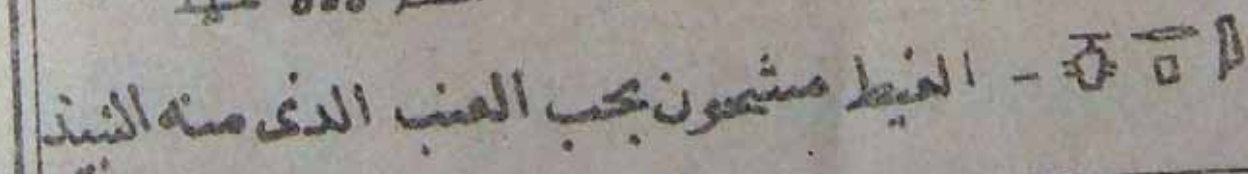 - الغيط مشحون بحب العنب الذى منه النبيذ